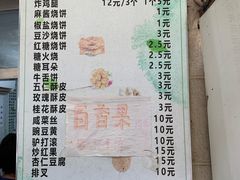 炸鸡腿 12元/3个 1个5元
麻酱烧饼 1元
椒盐烧饼 1元
豆沙烧饼 3元
红糖 2.5元
糖火烧 3元
糖耳朵 2.5元
牛舌 3元
五仁酥皮
玫瑰酥皮
桂花
咸菜丝 10元
豌豆黄
驴打滚 10元
炒红果 10元
杏仁豆腐 10元
排叉 10元
百香果